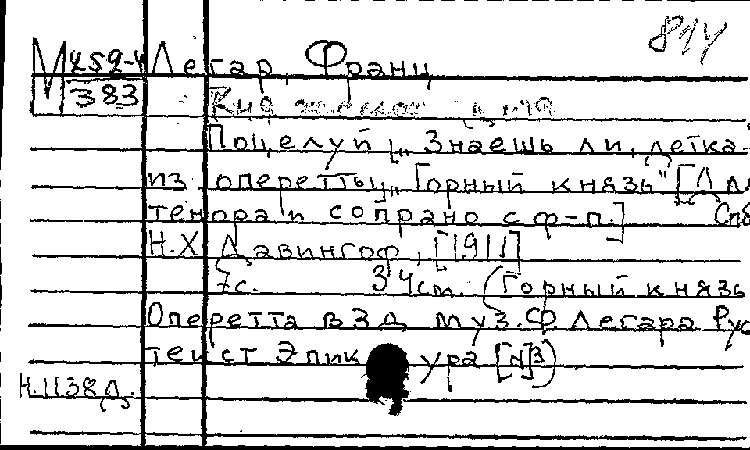 814
М 252-4 Легар, Франц
383
Поцелуй „Знаешь ли, детка-
из оперетты „Горный князь" [Дл
тенора и сопрано с ф-п.] Спб
Н.Х. Давингоф, [1911]
7с. 34см. (Горный князь
Оперетта в 3 д муз. Ф Легара Рус
текст Эпикура [№]3)
Н.1138Д.